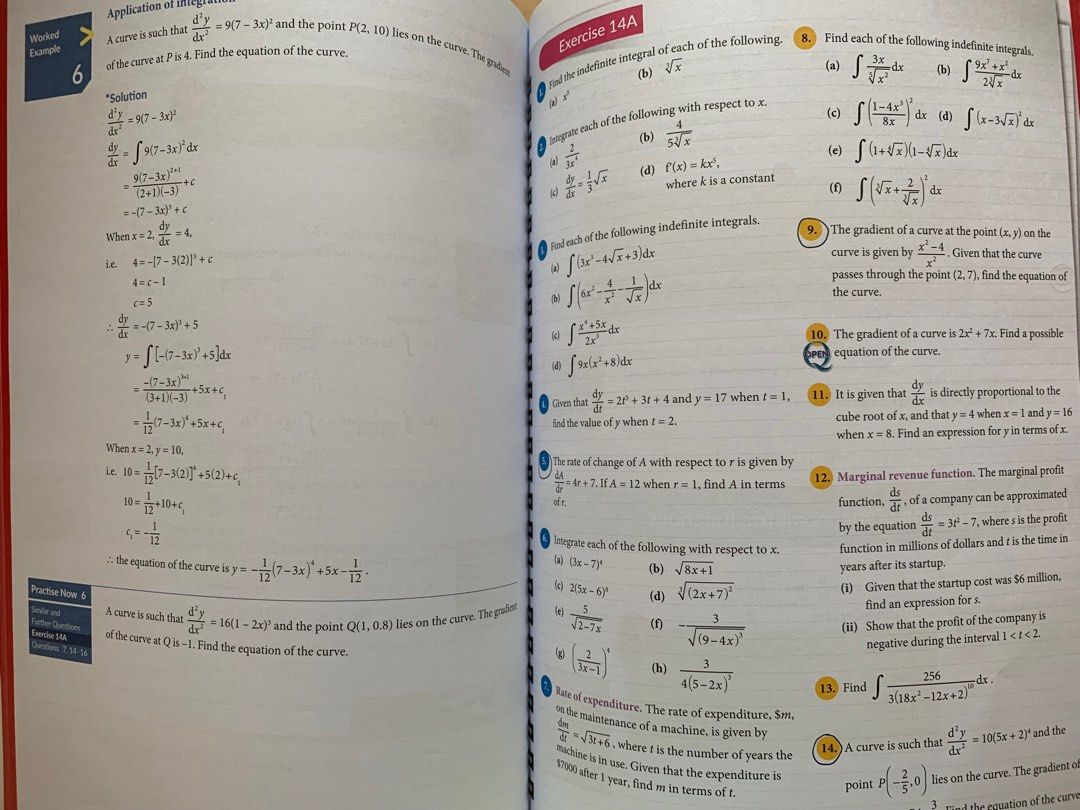 Application of
Worked
Example
6
A curve is such that d²y/dx² = 9(7 – 3x)² and the point P(2, 10) lies on the curve. The gradient
of the curve at P is 4. Find the equation of the curve.
*Solution
d²y/dx² = 9(7 – 3x)²
dy/dx = ∫ 9(7 – 3x)² dx
= 9(7 – 3x)²⁺¹/((2+1)(–3)) + c
= –(7 – 3x)³ + c
When x = 2, dy/dx = 4,
i.e. 4 = –[7 – 3(2)]³ + c
4 = c – 1
c = 5
∴ dy/dx = –(7 – 3x)³ + 5
y = ∫ [–(7 – 3x)³ + 5]dx
= –(7 – 3x)³⁺¹/((3+1)(–3)) + 5x + c₁
= 1/12(7 – 3x)⁴ + 5x + c₁
When x = 2, y = 10,
i.e. 10 = 1/12[7 – 3(2)]⁴ + 5(2) + c₁
10 = 1/12 + 10 + c₁
c₁ = – 1/12
∴ the equation of the curve is y = – 1/12(7 – 3x)⁴ + 5x – 1/12 .
Practise Now 6
Similar and
Further Questions
Exercise 14A
Questions 7, 14-16
A curve is such that d²y/dx² = 16(1 – 2x)³ and the point Q(1, 0.8) lies on the curve. The gradient
of the curve at Q is –1. Find the equation of the curve.
Exercise 14A
1. Find the indefinite integral of each of the following.
(a) x⁵ (b) ³√x
2. Integrate each of the following with respect to x.
(a) 2/(3x⁴) (b) 4/(5 ³√x)
(c) dy/dx = 1/3 √x (d) f′(x) = kx⁵,
where k is a constant
3. Find each of the following indefinite integrals.
(a) ∫ (3x³ – 4√x + 3)dx
(b) ∫ (6x² – 4/x² – 1/√x)dx
(c) ∫ (x⁴ + 5x)/(2x³) dx
(d) ∫ 9x(x² + 8)dx
4. Given that dy/dt = 2t³ + 3t + 4 and y = 17 when t = 1,
find the value of y when t = 2.
5. The rate of change of A with respect to r is given by
dA/dr = 4r + 7. If A = 12 when r = 1, find A in terms
of r.
6. Integrate each of the following with respect to x.
(a) (3x – 7)⁴ (b) √(8x + 1)
(c) 2(5x – 6)⁸ (d) ³√((2x + 7)²)
(e) 5/√(2 – 7x) (f) – 3/√((9 – 4x)³)
(g) (2/(3x – 1))⁴ (h) 3/(4(5 – 2x)³)
7. Rate of expenditure. The rate of expenditure, $m,
on the maintenance of a machine, is given by
dm/dt = √(3t + 6) , where t is the number of years the
machine is in use. Given that the expenditure is
$7000 after 1 year, find m in terms of t.
8. Find each of the following indefinite integrals.
(a) ∫ 3x/ ⁵√(x²) dx (b) ∫ (9x⁷ + x²)/(2 ³√x) dx
(c) ∫ ((1 – 4x³)/(8x))² dx (d) ∫ (x – 3√x)² dx
(e) ∫ (1 + ⁴√x)(1 – ⁴√x)dx
(f) ∫ (³√x + 2/ ³√x)² dx
9. The gradient of a curve at the point (x, y) on the
curve is given by (x² – 4)/x². Given that the curve
passes through the point (2, 7), find the equation of
the curve.
10. The gradient of a curve is 2x² + 7x. Find a possible
OPEN equation of the curve.
11. It is given that dy/dx is directly proportional to the
cube root of x, and that y = 4 when x = 1 and y = 16
when x = 8. Find an expression for y in terms of x.
12. Marginal revenue function. The marginal profit
function, ds/dt , of a company can be approximated
by the equation ds/dt = 3t² – 7, where s is the profit
function in millions of dollars and t is the time in
years after its startup.
(i) Given that the startup cost was $6 million,
find an expression for s.
(ii) Show that the profit of the company is
negative during the interval 1 < t < 2.
13. Find ∫ 256/(3(18x² – 12x + 2)¹⁰) dx .
14. A curve is such that d²y/dx² = 10(5x + 2)⁴ and the
point P(– 2/5, 0) lies on the curve. The gradient of
3 Find the equation of the curve